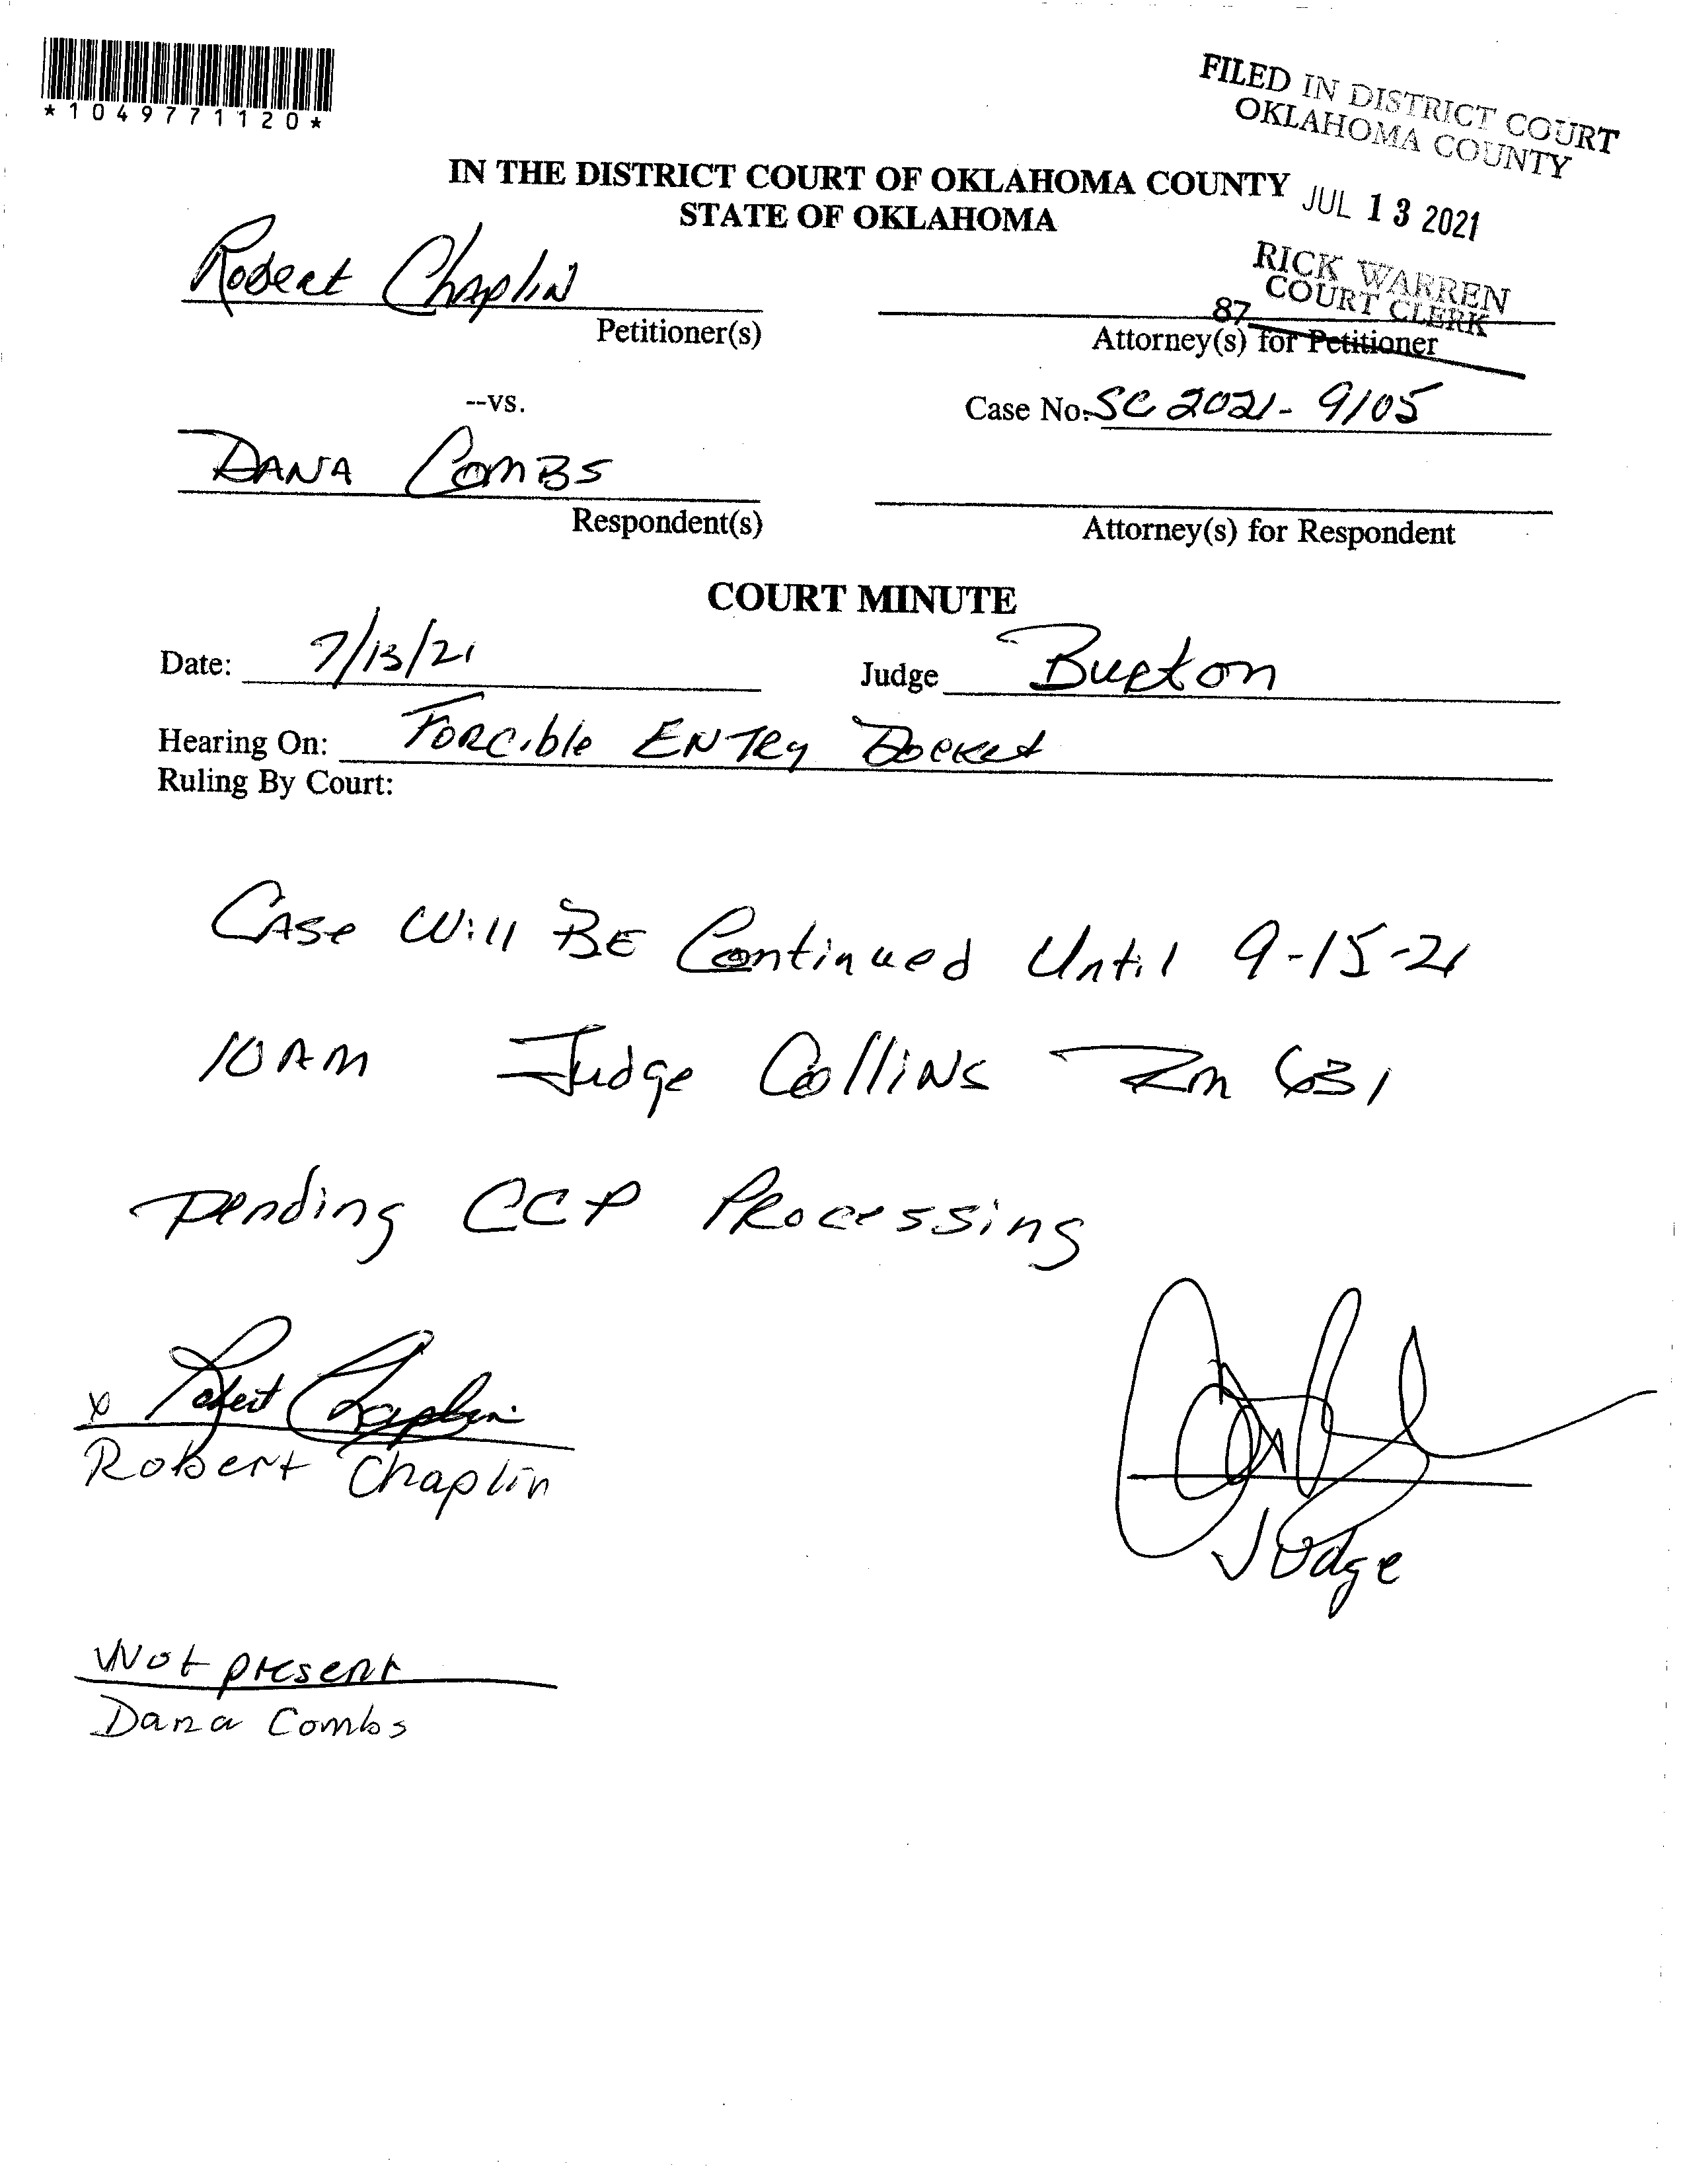 *1049771120*
FILED IN DISTRICT COURT
OKLAHOMA COUNTY
IN THE DISTRICT COURT OF OKLAHOMA COUNTY
STATE OF OKLAHOMA
JUL 13 2021
RICK WARREN
COURT CLERK
87
Robert Chaplin
Petitioner(s)
Attorney(s) for Petitioner
--vs.
Case No. SC 2021-9105
DANA COMBS
Respondent(s)
Attorney(s) for Respondent
COURT MINUTE
Date: 7/13/21 Judge Burton
Hearing On: FORCible ENTRy Docket
Ruling By Court:
CASe Will BE Continued Until 9-15-21
10 AM Judge CollINs Rm 631
Pending CCP PRocessing
x Robert Chaplin
Robert Chaplin
Judge
Not present
Dana Combs